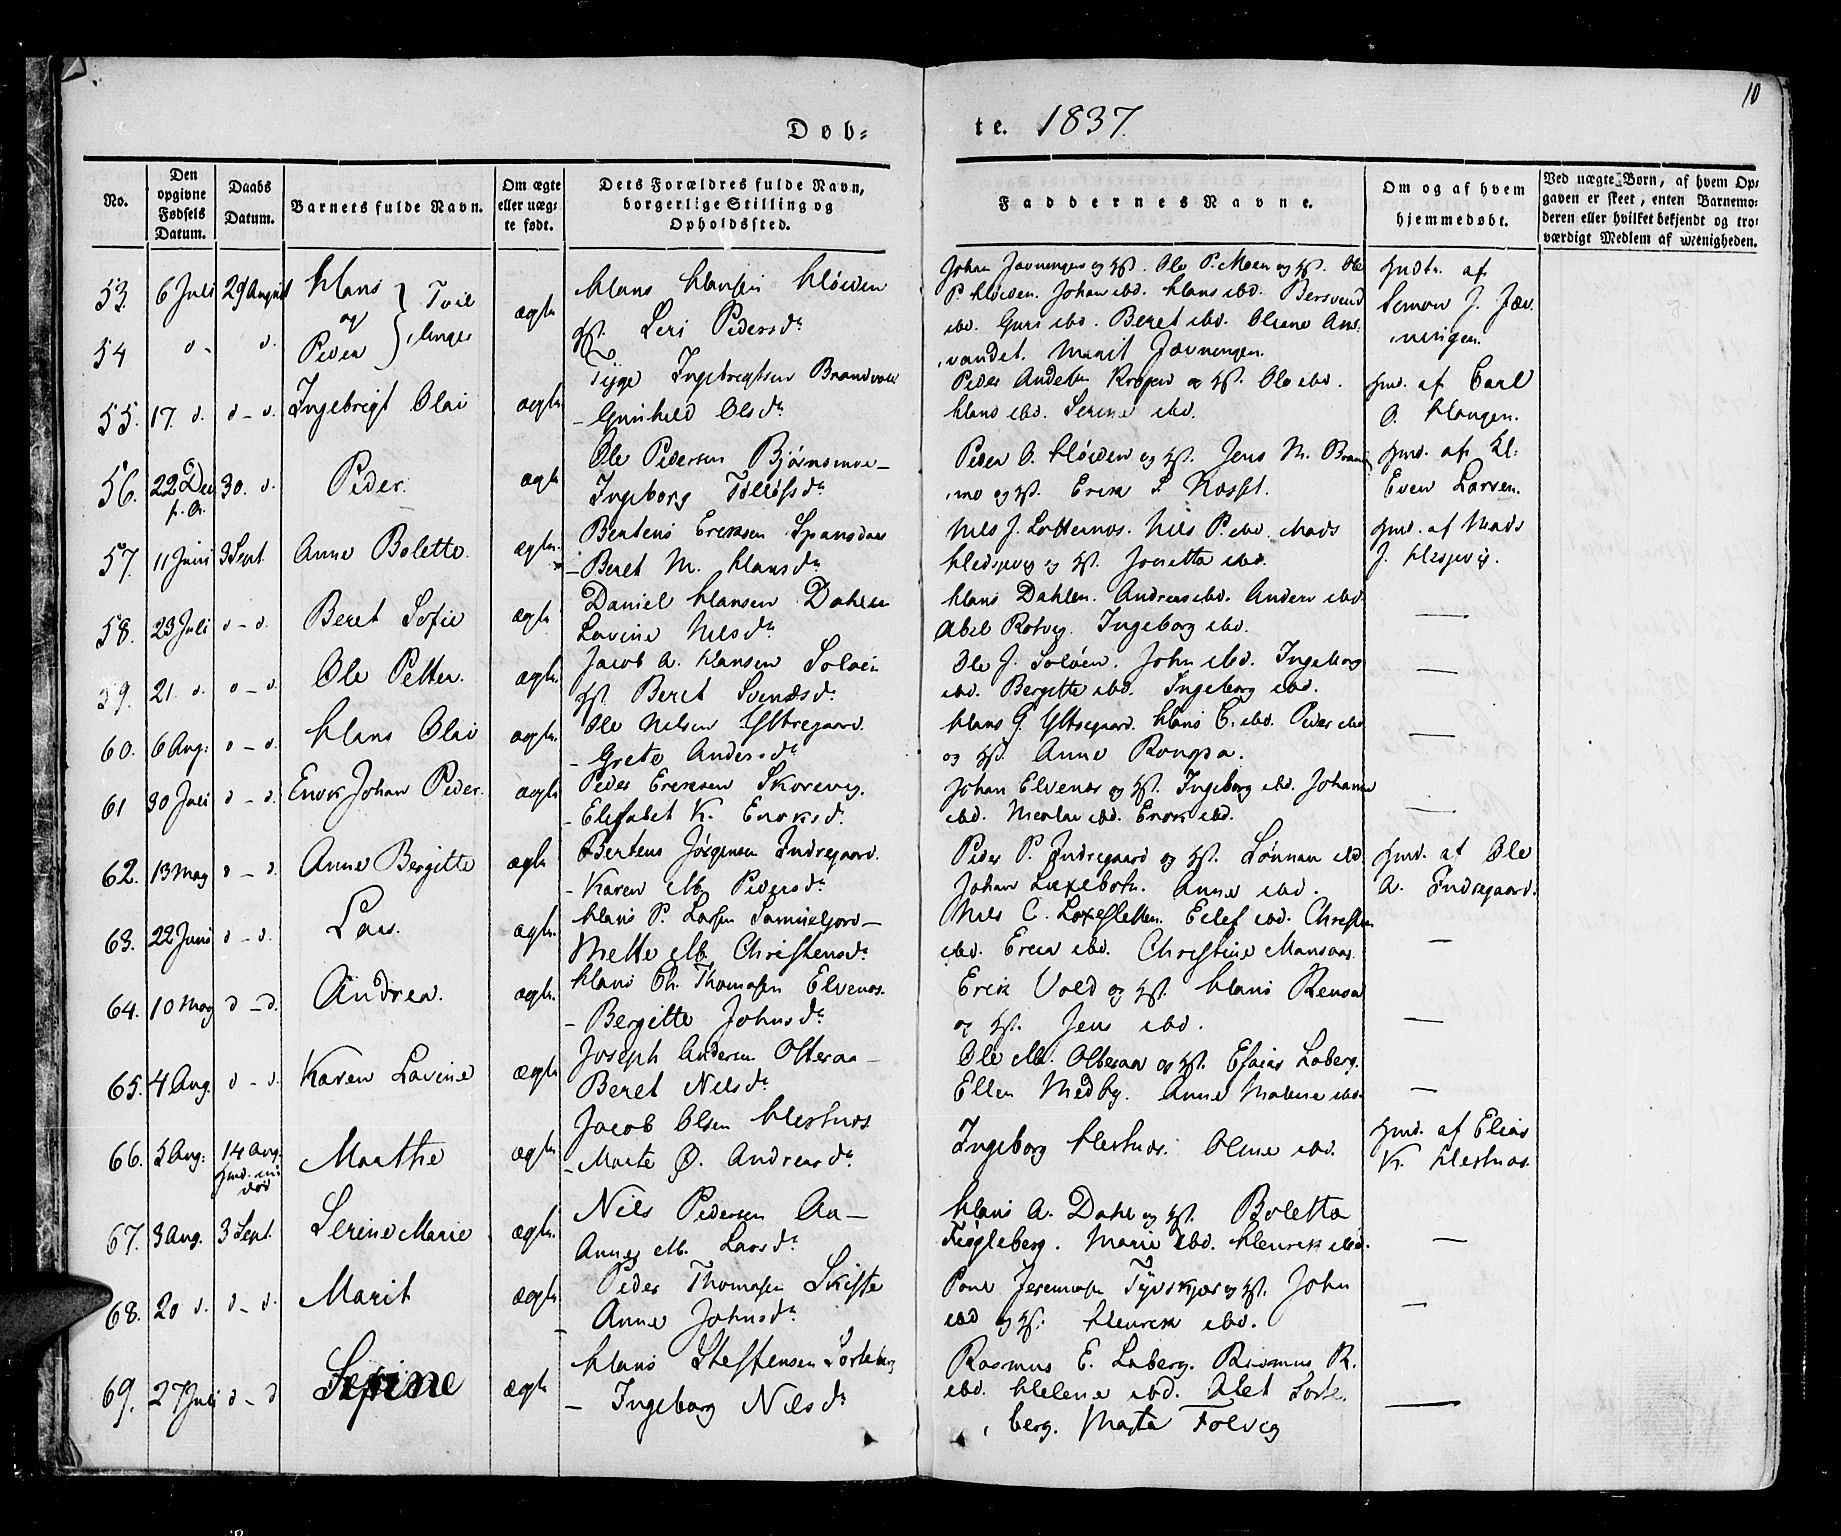 10
Døb=
te. 1837.
No.
Den opgivne Fødsels Datum.
Daabs Datum.
Barnets fulde Navn.
Om ægte eller uægte født.
Dets Forældres fulde Navn, borgerlige Stilling og Opholdssted.
Faddernes Navne.
Om og af hvem hjemmedøbt.
Ved uægte Børn, af hvem Opgaven er skeet, enten Barnemoderen eller hvilket bekjendt og troværdigt Medlem af Menigheden.
53. 6 Juli 29 August Hans
og } Tvil
54 d - d. Peder } linger ægte
Hans Hansen Høiden
Hst. Seri Pedersdr
Johan Jævningen og Hst. Ole P. Moen og Hst. Ole
P. Høiden. Johan ibd. Hans ibd. Bersvend
ibd. Guri ibd. Beret ibd. Olene Ans
vandet. Marit Jævningen.
Hmdr. af
Simon J. Jæv
ningen.
55. 17. d. d - d. Ingebrigt Olai ægte
Tyge Ingebrigtsen Brandvold
- Gunhild Olsdr
Peder Andersen Kroken og Hst. Ole ibd.
Hans ibd. Serine ibd.
Hmd. af Carl
O. Haugen.
56. 22 Dec f. A. 30. d. Peder. ægte
Ole Pedersen Bjørnmoe -
Ingeborg Tollefsdr
Peder O. Høiden og Hst. Jens M. Brand
mo og Hst. Erik L. Kosset.
Hmd. af Kl:
Even Larsen.
57. 11 Juni 3 Sept. Anne Bolette. ægte.
Bertens Eriksen Spansdal
- Beret M. Hansdr
Nils J. Lotternes. Nils P. ibd. Mads
Hesjevig og Hst. Jonetta ibd.
Hmd. af Mads
J. Hesjevig.
58. 23 Juli d - d. Beret Sofie ægte
Daniel Hansen Dahlen
Lavine Nilsdr
Hans Dahlen. Andreas ibd. Anders ibd.
Abel Rotvig. Ingeborg ibd.
—
59. 21. d. d - d. Ole Petter. ægte.
Jacob A. Hansen Soløen
Hst. Beret Svendsdr
Ole J. Soløen. John ibd. Ingeborg
ibd. Bergitte ibd. Ingeborg ibd.
—
60. 6 Aug: d - d. Hans Olai ægte.
Ole Nilsen Yttregaard.
- Grete Andersdr
Hans G. Yttregaard. Hans C. ibd. Peder ibd.
og Hst. Anne Rongsa.
—
61 30 Juli d - d. Enok Johan Peder. ægte
Peder Eriksen Skorevig.
- Elisabet K. Enoksdr.
Johan Elvenes og Hst. Ingeborg ibd. Johanna
ibd. Nicolai ibd. Enok ibd.
—
62. 13 May d - d. Anne Bergitte ægte
Bertens Jørgensen Indregaard.
- Karen M. Pedersdr
Peder P. Indregaard og Hst. Lønnan ibd.
Johan Laxebotn. Anne ibd.
Hmd. af Ole
A. Indregaard.
63. 22 Juni d - d. Lars. ægte.
Hans P. Larsen Samuelfjord -
Mette M. Christensdr
Nils C. Laxesletten. Eilef ibd. Christen
ibd. Erik ibd. Christine Mansaas.
—
64. 10 May d - d. Andrea. ægte.
Hans Ch. Thomasen Elvenes.
- Bergitte Johnsdr
Erik Vold og Hst. Hans Rensaa
og Hst. Jens ibd.
—
65. 4 Aug. d - d. Karen Lavine ægte
Joseph Andersen Olteraa -
Beret Nilsdr
Ole M. Olteraa og Hst. Esaias Laberg.
Ellen Medby. Anne Malene ibd.
—
66. 3 Aug: 14 Aug. hmd. død Marthe ægte
Jacob Olsen Hestnes
- Marte Ø. Andreasdr
Ingeborg Hestnes. Oline ibd.
Hmd. af Elias
K. Hestnes.
67. 3 Aug. 3 Sept. Serine Marie ægte.
Nils Pedersen Aa -
Anne M. Larsdr
Hans A. Dahl og Hst. Boletta
Fugleberg. Marie ibd. Henrik ibd.
—
68. 20 d. d - d. Marit ægte
Peder Thomasen Skifte
- Anne Johnsdr
Povel Jeremiasen Tyvskjær og Hst. John
ibd og Hst. Henrik ibd.
—
69. 27 Juli d - d Serine ægte
Hans Steffensen Sorteberg
- Ingeborg Nilsdr
Rasmus E. Laberg. Rasmus R.
ibd. Helene ibd. Alet Sorte
berg. Marta Folvig
—